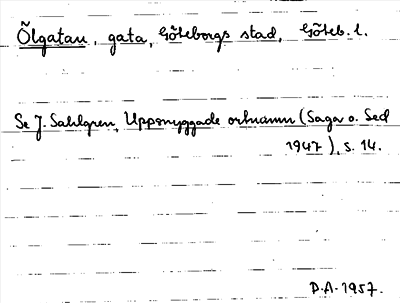 Õlgatan, gata, Göteborgs stad, Göteb. l.
Se J. Sahlgren, Uppsnyggade ortnamn (Saga o. Sed
1947), s. 14.
P.A. 1957.